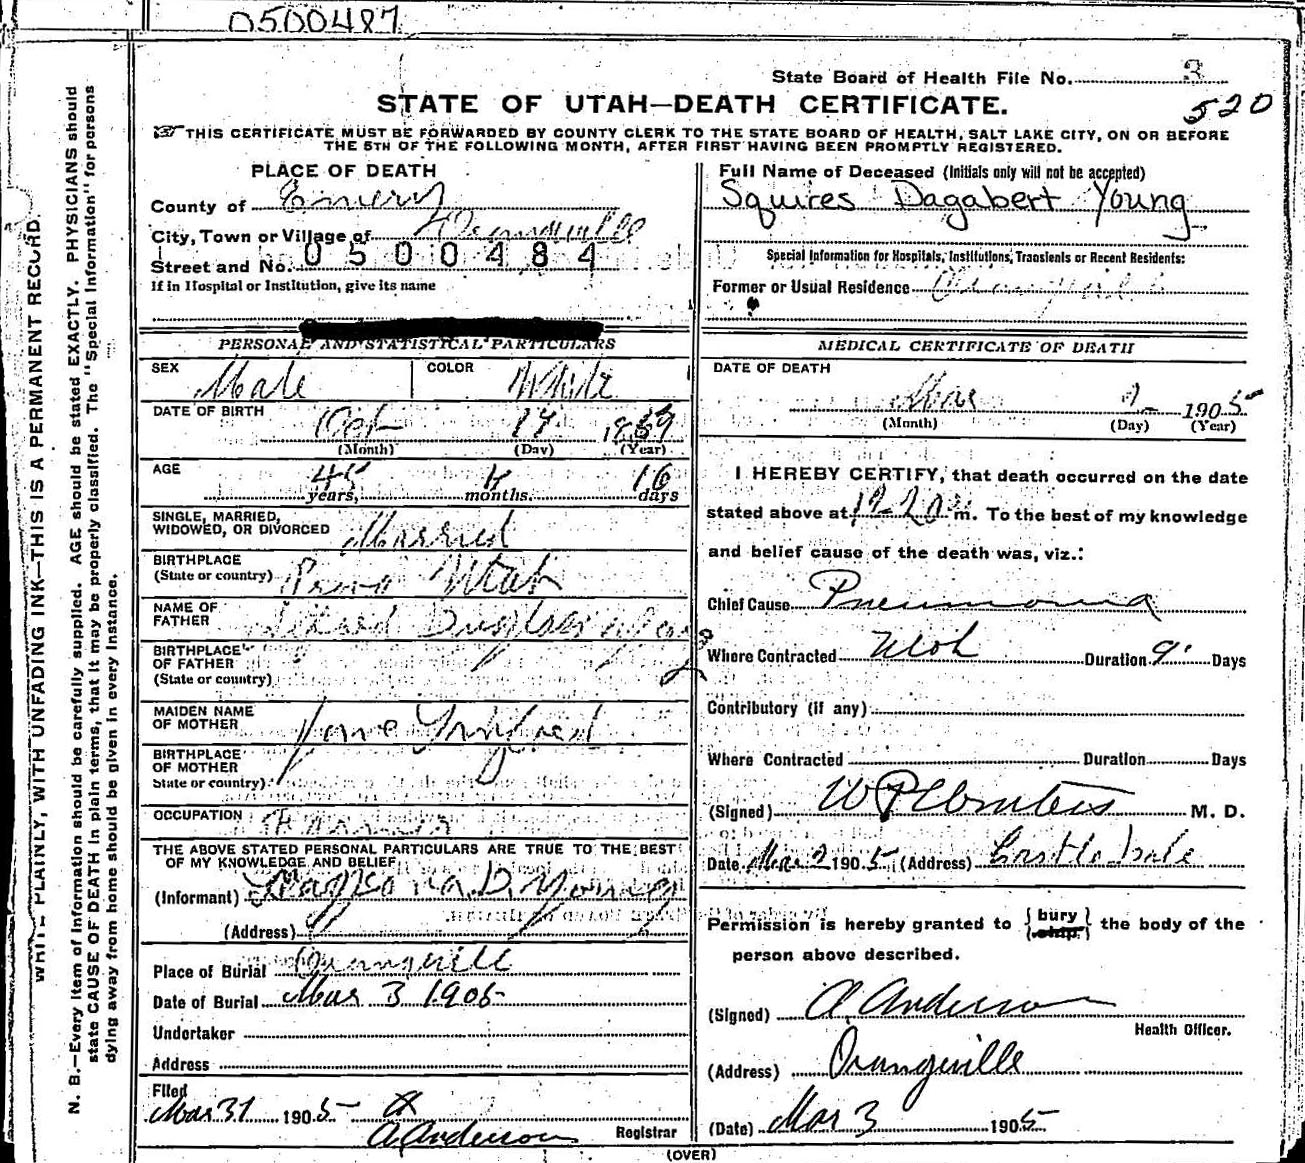 0500487
State Board of Health File No. 3
STATE OF UTAH—DEATH CERTIFICATE.
520
THIS CERTIFICATE MUST BE FORWARDED BY COUNTY CLERK TO THE STATE BOARD OF HEALTH, SALT LAKE CITY, ON OR BEFORE
THE 5TH OF THE FOLLOWING MONTH, AFTER FIRST HAVING BEEN PROMPTLY REGISTERED.
WRITE PLAINLY, WITH UNFADING INK—THIS IS A PERMANENT RECORD.
N. B.—Every item of Information should be carefully supplied. AGE should be stated EXACTLY. PHYSICIANS should
state CAUSE OF DEATH in plain terms, that it may be properly classified. The "Special Information" for persons
dying away from home should be given in every instance.
PLACE OF DEATH
County of Emery
City, Town or Village of Orangeville
Street and No. 0500484
If in Hospital or Institution, give its name
PERSONAL AND STATISTICAL PARTICULARS
SEX Male COLOR White
DATE OF BIRTH
Oct 1859
(Month) (Day) (Year)
AGE
45 years, 4 months. 16 days
SINGLE, MARRIED,
WIDOWED, OR DIVORCED Married
BIRTHPLACE
(State or country) Provo Utah
NAME OF
FATHER
BIRTHPLACE
OF FATHER
(State or country)
MAIDEN NAME
OF MOTHER
BIRTHPLACE
OF MOTHER
State or country)
OCCUPATION Farmer
THE ABOVE STATED PERSONAL PARTICULARS ARE TRUE TO THE BEST
OF MY KNOWLEDGE AND BELIEF
(Informant) D. Young
(Address)
Place of Burial Orangeville
Date of Burial Mar 3 1905
Undertaker
Address
Filed
Mar 31 1905
A Anderson Registrar
Full Name of Deceased (Initials only will not be accepted)
Squires Dagabert Young
Special Information for Hospitals, Institutions, Transients or Recent Residents:
Former or Usual Residence Orangeville
MEDICAL CERTIFICATE OF DEATH
DATE OF DEATH
Mar 2 1905
(Month) (Day) (Year)
I HEREBY CERTIFY, that death occurred on the date
stated above at m. To the best of my knowledge
and belief cause of the death was, viz.:
Chief Cause Pneumonia
Where Contracted Utah Duration 9 Days
Contributory (if any)
Where Contracted Duration Days
(Signed) M. D.
Date Mar 2 1905 (Address) Castle Dale
Permission is hereby granted to {bury ship} the body of the
person above described.
(Signed) A. Anderson
Health Officer.
(Address) Orangeville
(Date) Mar 3 1905
(OVER)